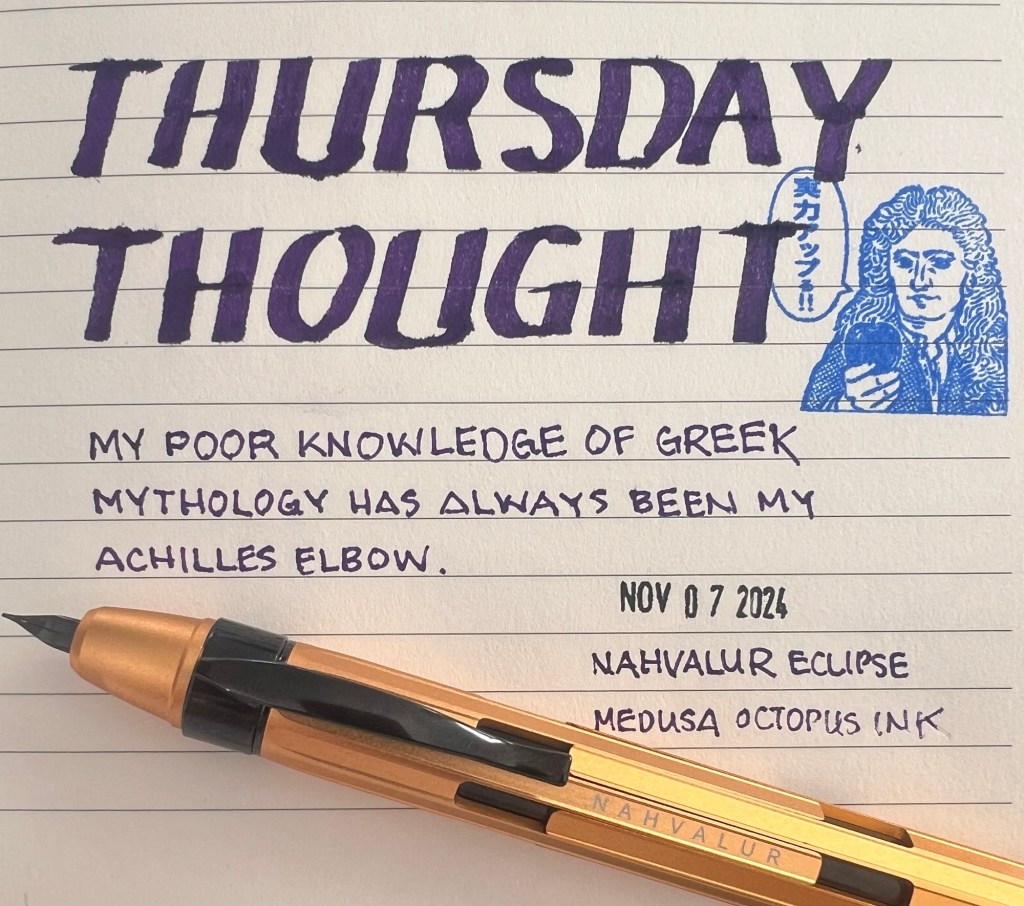 THURSDAY
THOUGHT
実力アップ!!
MY POOR KNOWLEDGE OF GREEK
MYTHOLOGY HAS ALWAYS BEEN MY
ACHILLES ELBOW.
NOV 07 2024
NAHVALUR ECLIPSE
MEDUSA OCTOPUS INK
NAHVALUR